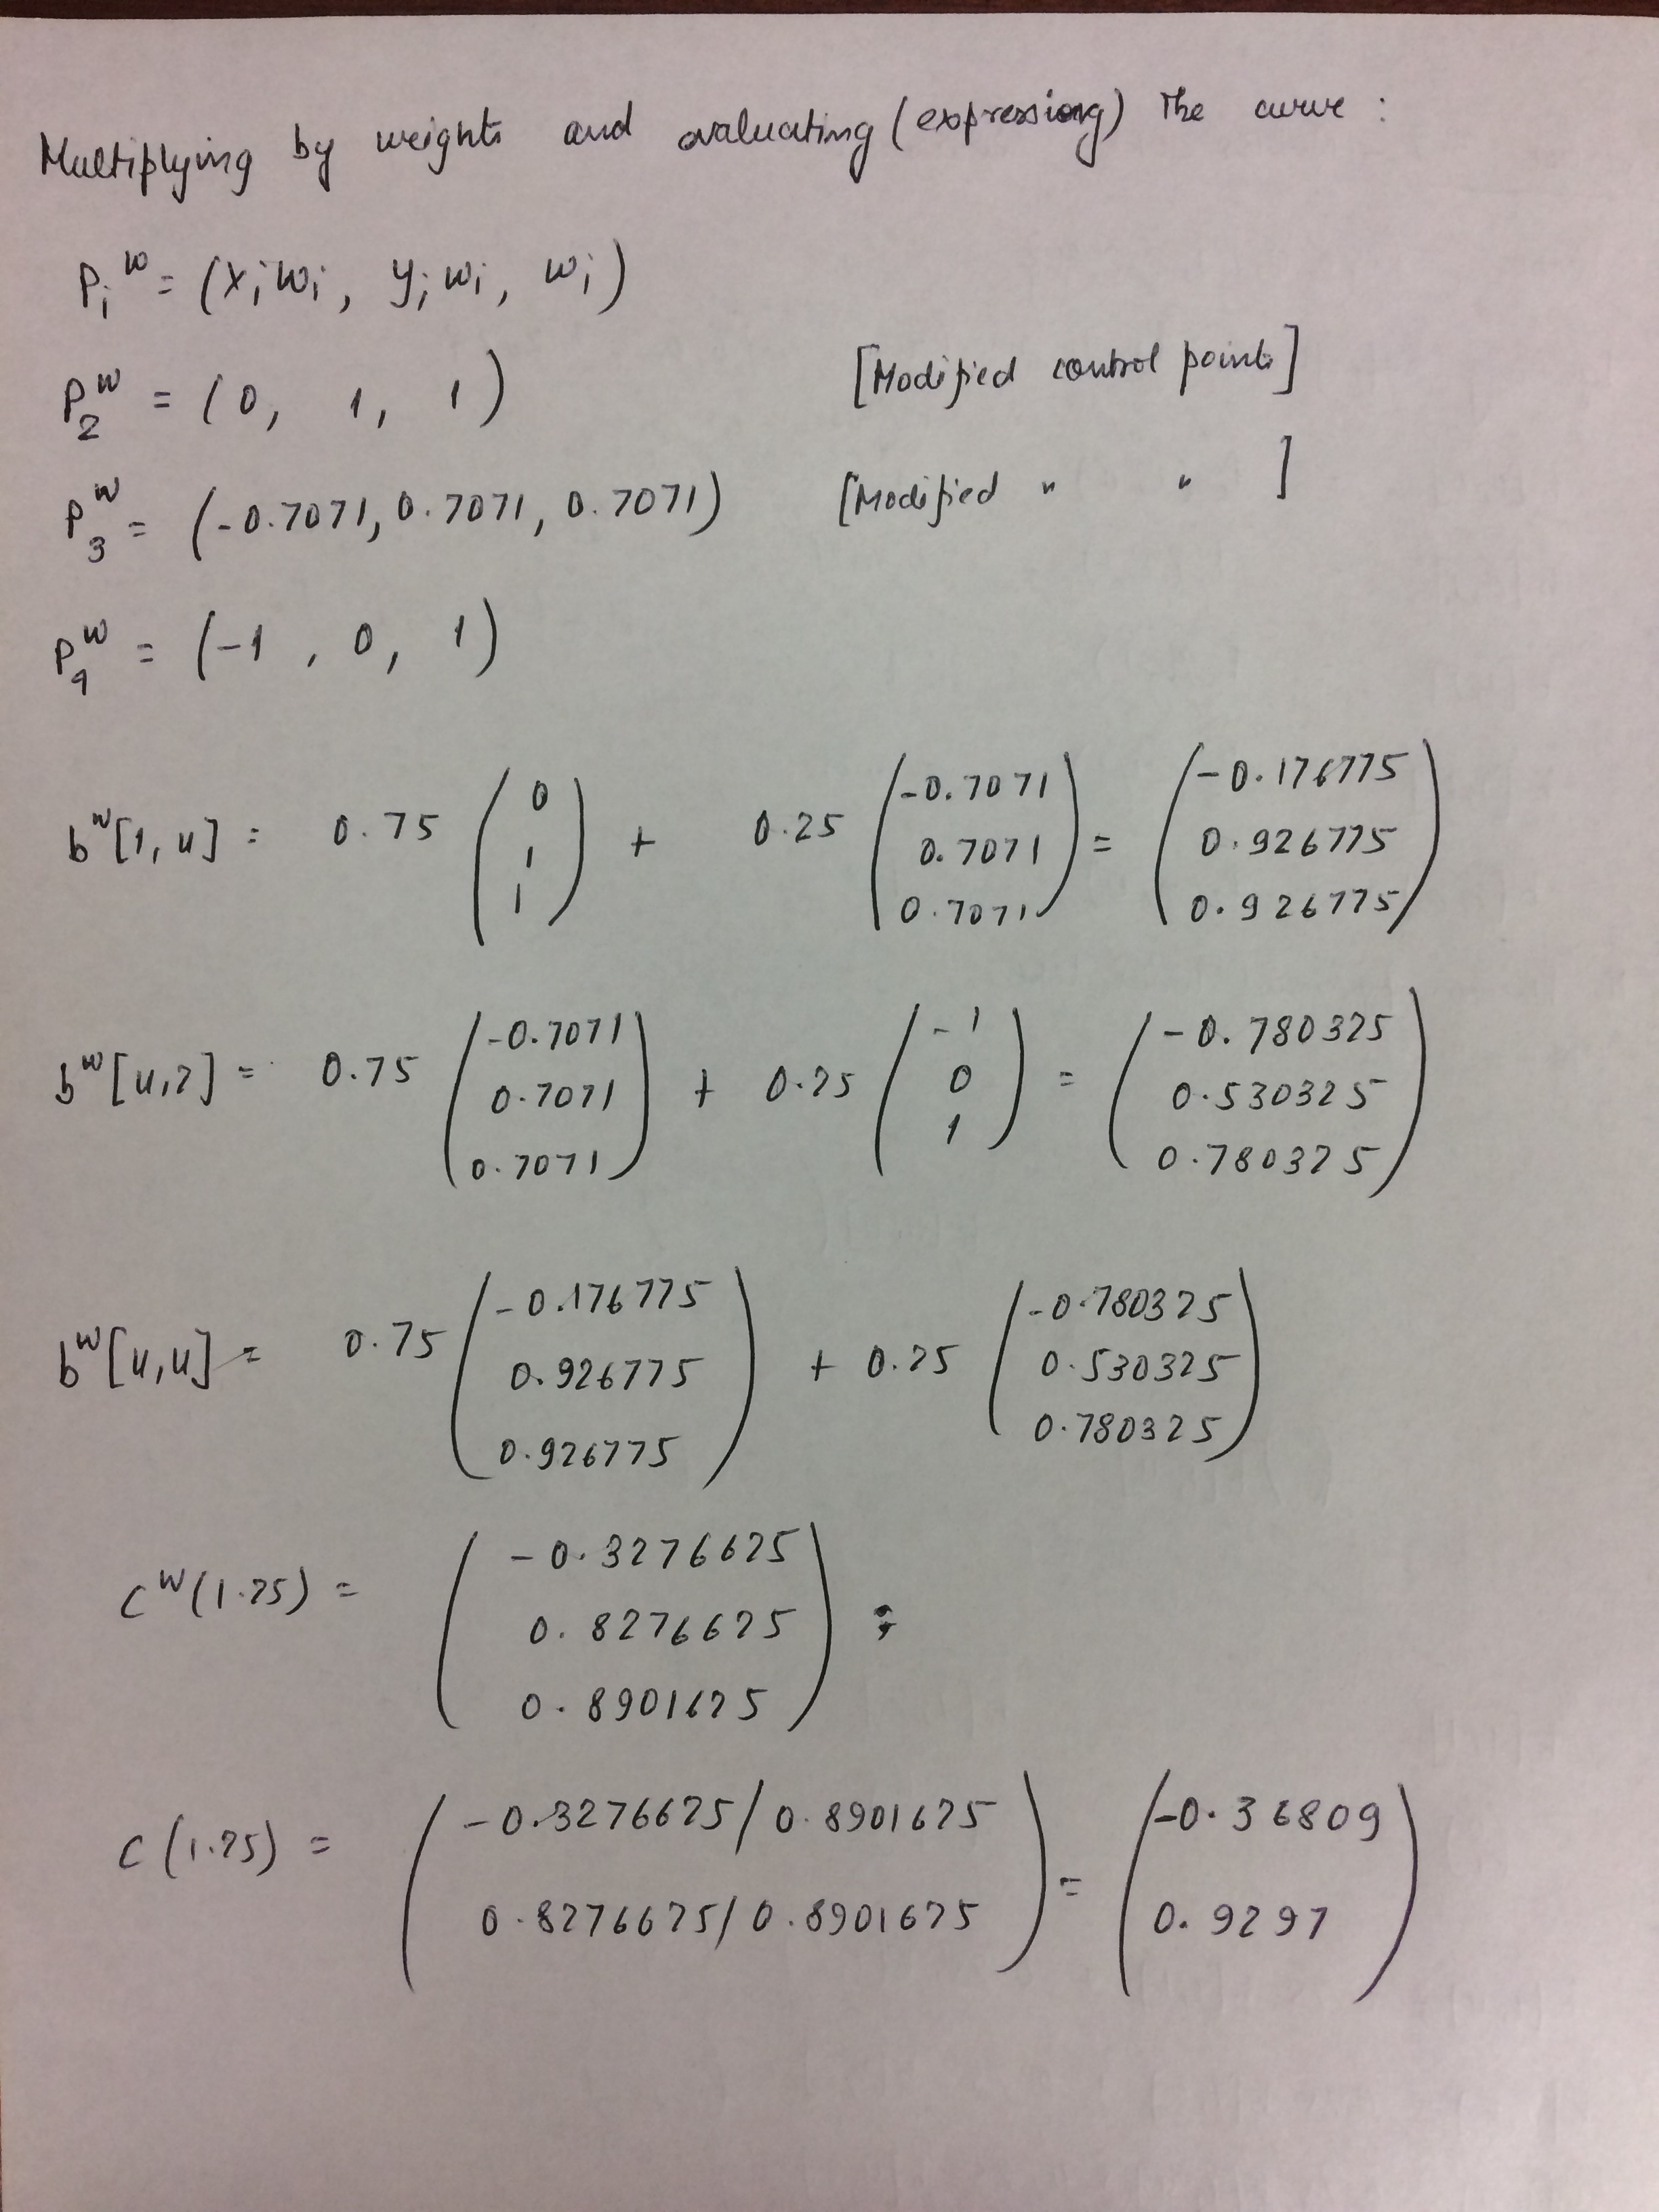 Multiplying by weights and evaluating (expressiong) the curve :
P_i^w = (x_i w_i, y_i w_i, w_i)
P_2^w = (0, 1, 1) [Modified control points]
P_3^w = (-0.7071, 0.7071, 0.7071) [Modified " " ]
P_4^w = (-1, 0, 1)
b^w[1,u] = 0.75 (0 1 1) + 0.25 (-0.7071 0.7071 0.7071) = (-0.176775 0.926775 0.926775)
b^w[u,2] = 0.75 (-0.7071 0.7071 0.7071) + 0.25 (-1 0 1) = (-0.780325 0.530325 0.780325)
b^w[u,u] = 0.75 (-0.176775 0.926775 0.926775) + 0.25 (-0.780325 0.530325 0.780325)
c^w(1.25) = (-0.3276625 0.8276625 0.8901625) ;
c(1.25) = (-0.3276625/0.8901625 0.8276625/0.8901625) = (-0.36809 0.9297)